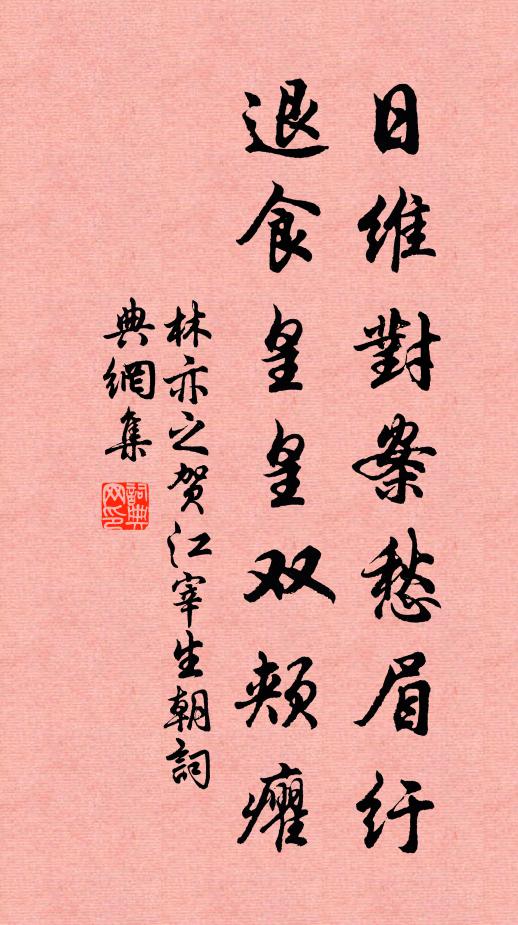 日維對案愁眉纡
退食皇皇双頰癯
林亦之贺江宰生朝詞
典網集
詞典
网印